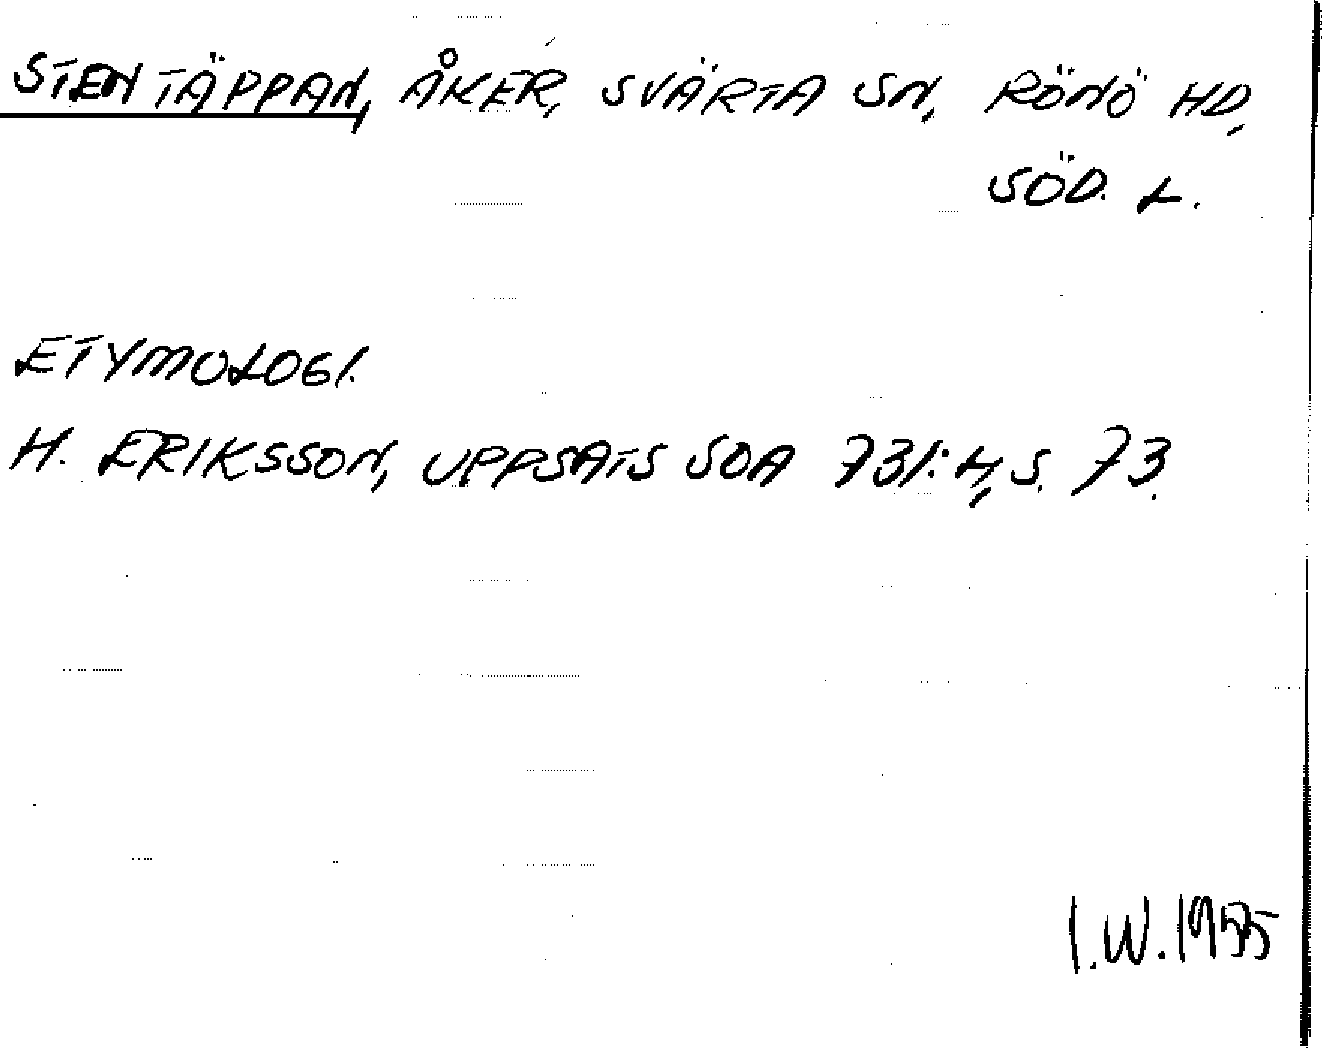 STENTÄPPAN, ÅKER, SVÄRTA SN, RÖNÖ HD,
SÖD. L.
ETYMOLOGI.
H. ERIKSSON, UPPSATS SOA 731:4, S. 73.
I.W. 1955